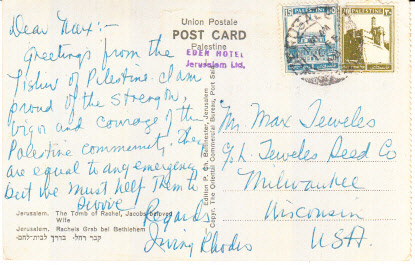 Dear Max:-
Greetings from the
Yishuv of Palestine. I am
proud of the strength,
vigor and courage of the
Palestine community. They
are equal to any emergency
but we must help them to
survive
Regards
Irving Rhodes
Union Postale
POST CARD
Palestine
EDEN HOTEL
Jerusalem Ltd.
PALESTINE
PALESTINE
Mr. Max Teweles
c/o L. Teweles Seed Co
Milwaukee
Wisconsin
U.S.A.
Jerusalem. The Tomb of Rachel, Jacobs beloved
Wife
Jerusalem. Rachels Grab bei Bethlehem
קבר רחל. בדרך לבית-לחם
Copyr. The Oriental Commercial Bureau, Port Said